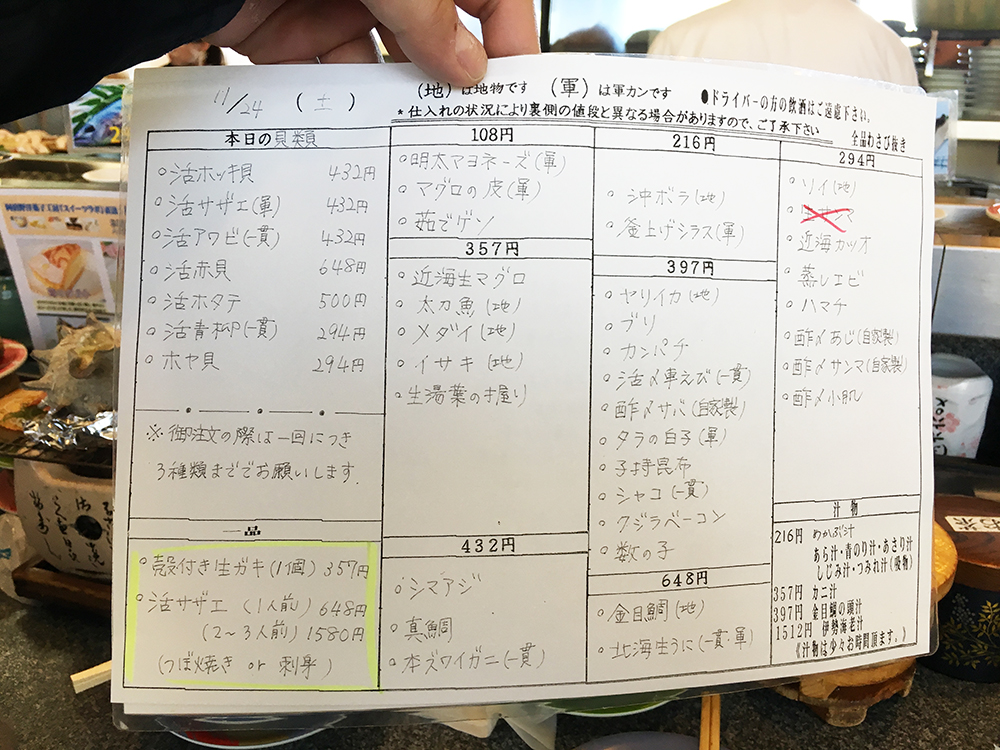 11/24 (土)
(地)は地物です (軍)は軍カンです
●ドライバーの方の飲酒はご遠慮下さい。
*仕入れの状況により裏側の値段と異なる場合がありますので、ご了承下さい
全品わさび抜き
本日の貝類
○活ホッキ貝 432円
○活サザエ(軍) 432円
○活アワビ(一貫) 432円
○活赤貝 648円
○活ホタテ 500円
○活青柳(一貫) 294円
○ホヤ貝 294円
※御注文の際は一回につき
3種類まででお願いします.
一品
○殻付き生ガキ(1個) 357円
○活サザエ (1人前) 648円
(2~3人前) 1580円
(つぼ焼き or 刺身)
108円
○明太マヨネーズ(軍)
○マグロの皮(軍)
○茹でゲソ
357円
○近海生マグロ
○太刀魚(地)
○メダイ(地)
○イサキ(地)
○生湯葉の手握り
432円
○シマアジ
○真鯛
○本ズワイガニ(一貫)
216円
○沖ボラ(地)
○釜上げシラス(軍)
397円
○ヤリイカ(地)
○ブリ
○カンパチ
○活〆車えび(一貫)
○酢〆サバ(自家製)
○タラの白子(軍)
○子持昆布
○シャコ(一貫)
○クジラベーコン
○数の子
648円
○金目鯛(地)
○北海生うに(一貫 軍)
294円
○ソイ(地)
○近海カツオ
○蒸しエビ
○ハマチ
○酢〆あじ(自家製)
○酢〆サンマ(自家製)
○酢〆小肌
汁物
216円 めかぶ汁
あら汁・青のり汁・あさり汁
しじみ汁・つみれ汁(吸物)
357円 カニ汁
397円 金目鯛の頭汁
1512円 伊勢海老汁
《汁物は少々お時間頂ます。》